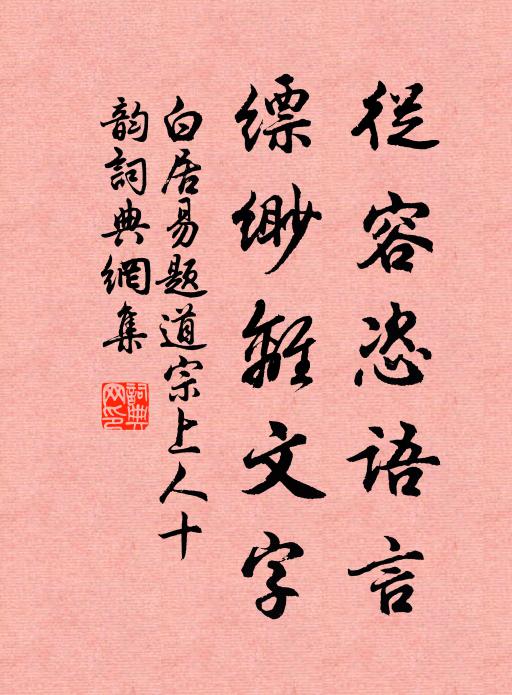 從容恣語言
縹緲離文字
白居易題道宗上人十
韵詞典網集
詞典
网印